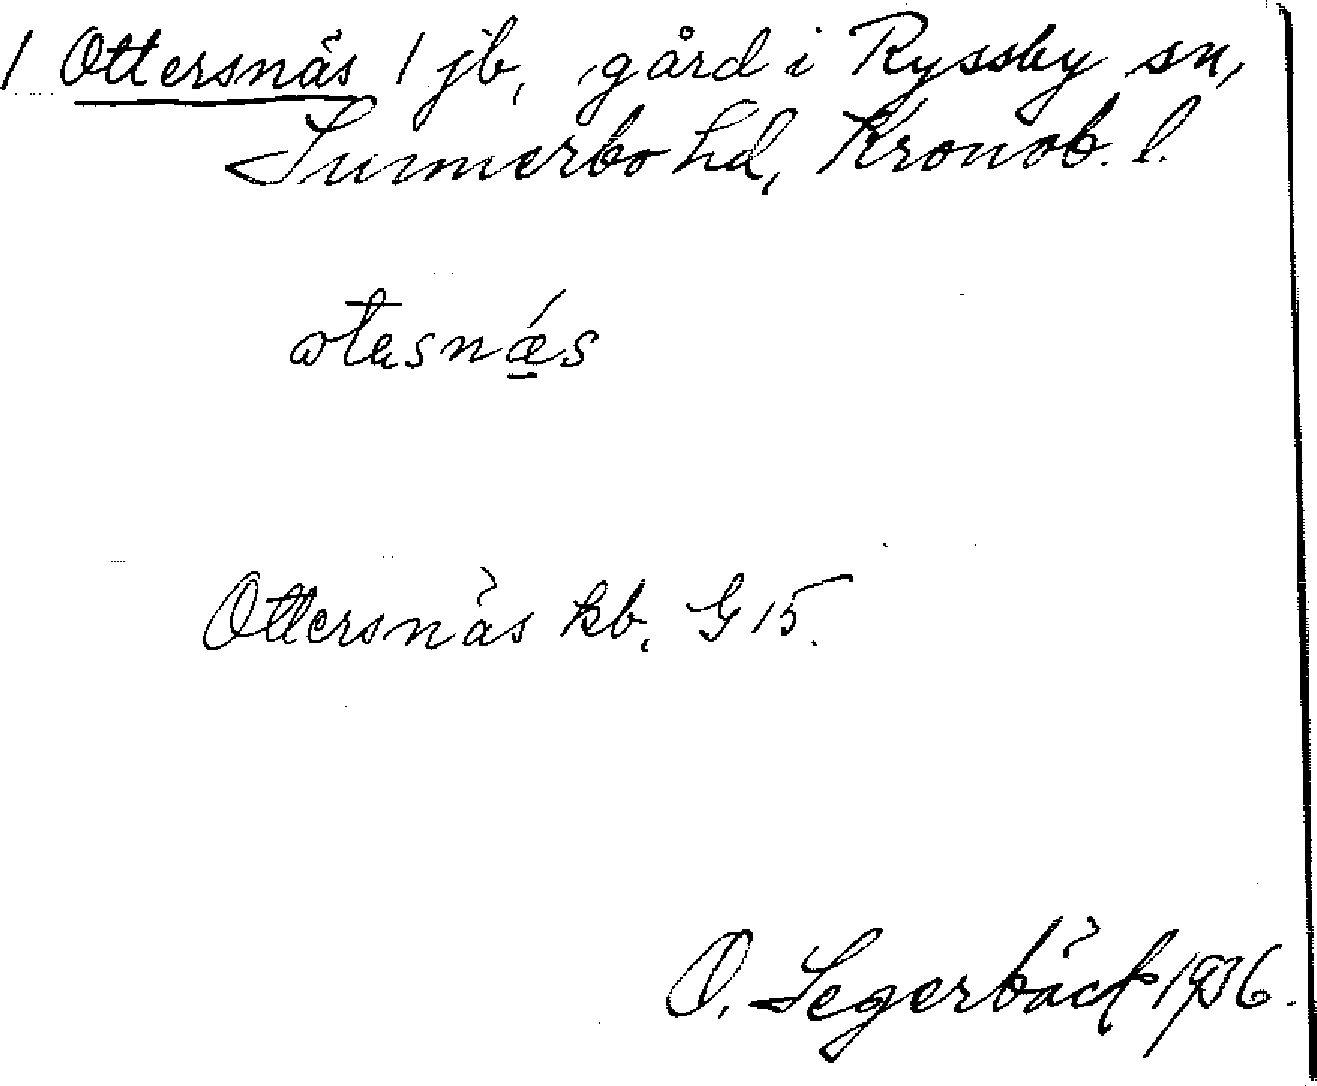 / Ottersnäs / jb, gård i Ryssby sn,
Sunnerbo hd, Kronob. l.
Ottersnäs kb. G 15.
O. Segerbäck 1936.